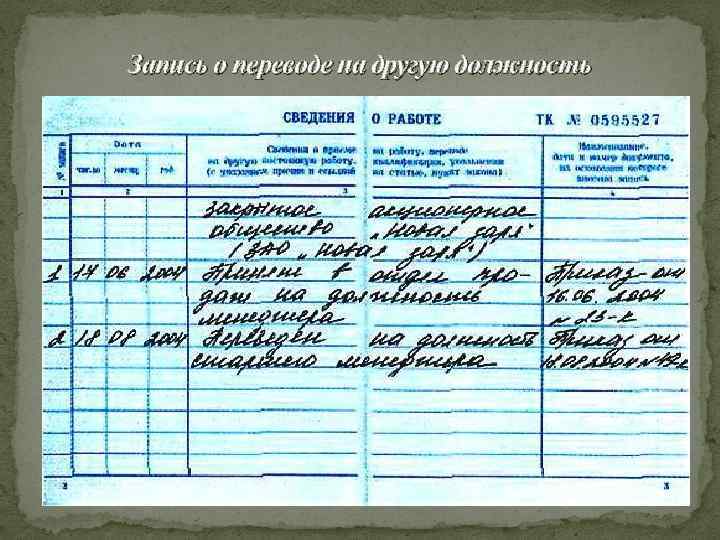 Запись о переводе на другую должность
СВЕДЕНИЯ О РАБОТЕ ТК № 0595527
№ записи
Дата
число месяц год
Сведения о приеме на работу, переводе
на другую постоянную работу, квалификации, увольнении
(с указанием причин и ссылкой на статью, пункт закона)
Наименование,
дата и номер документа,
на основании которого
внесена запись
1 2 3 4
закрытое акционерное
общество „Новая заря“
(ЗАО „Новая заря“)
1 17 06 2004 Принят в отдел про- Приказ от
даж на должность 16.06. 2004
менеджера
2 18 08 2004 Переведен на должность Приказ от
старшего менеджера 18.08.2004
2 3